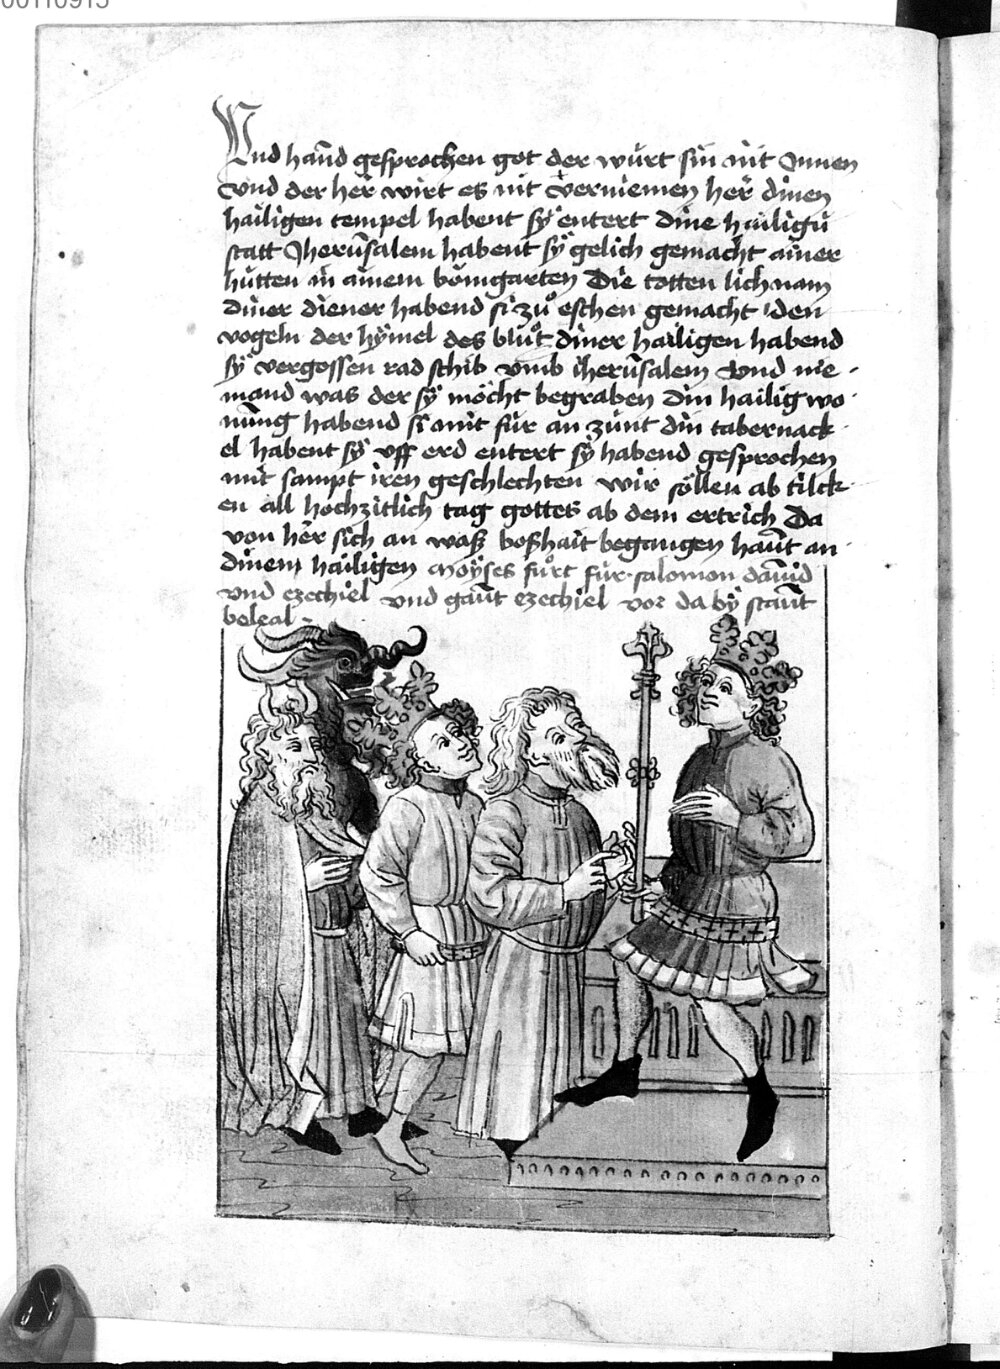 00110915
Und hand gesprochen got der würt sin nit Innen
vnd der her wirt es nit verniemen her dinen
hailigen tempel habent sy entert dine hailigu
statt Jherusalem habent sy gelich gemacht ainer
hutten in ainem bömgarten Die totten lichnam
diner diener habend si zu eschen gemacht den
vogeln der hymel des blut diner hailigen habend
sy vergossen rad schib vmb iherusalem vnd nie
mand was der sy möcht begraben Din hailig wo
nung habend si mit für an zünt din tabernack
el habent sy vff erd entert sy habend gesprochen
mit sampt iren geschlechten wir söllen ab tilck
en all hochzitlich tag gottes ab dem ertrich Da
von her sich an waß boßhait begangen haut an
dinem hailigen Moyses fürt für salomon dauid
vnd ezechiel vnd gaut ezechiel vor da by staut
beleal